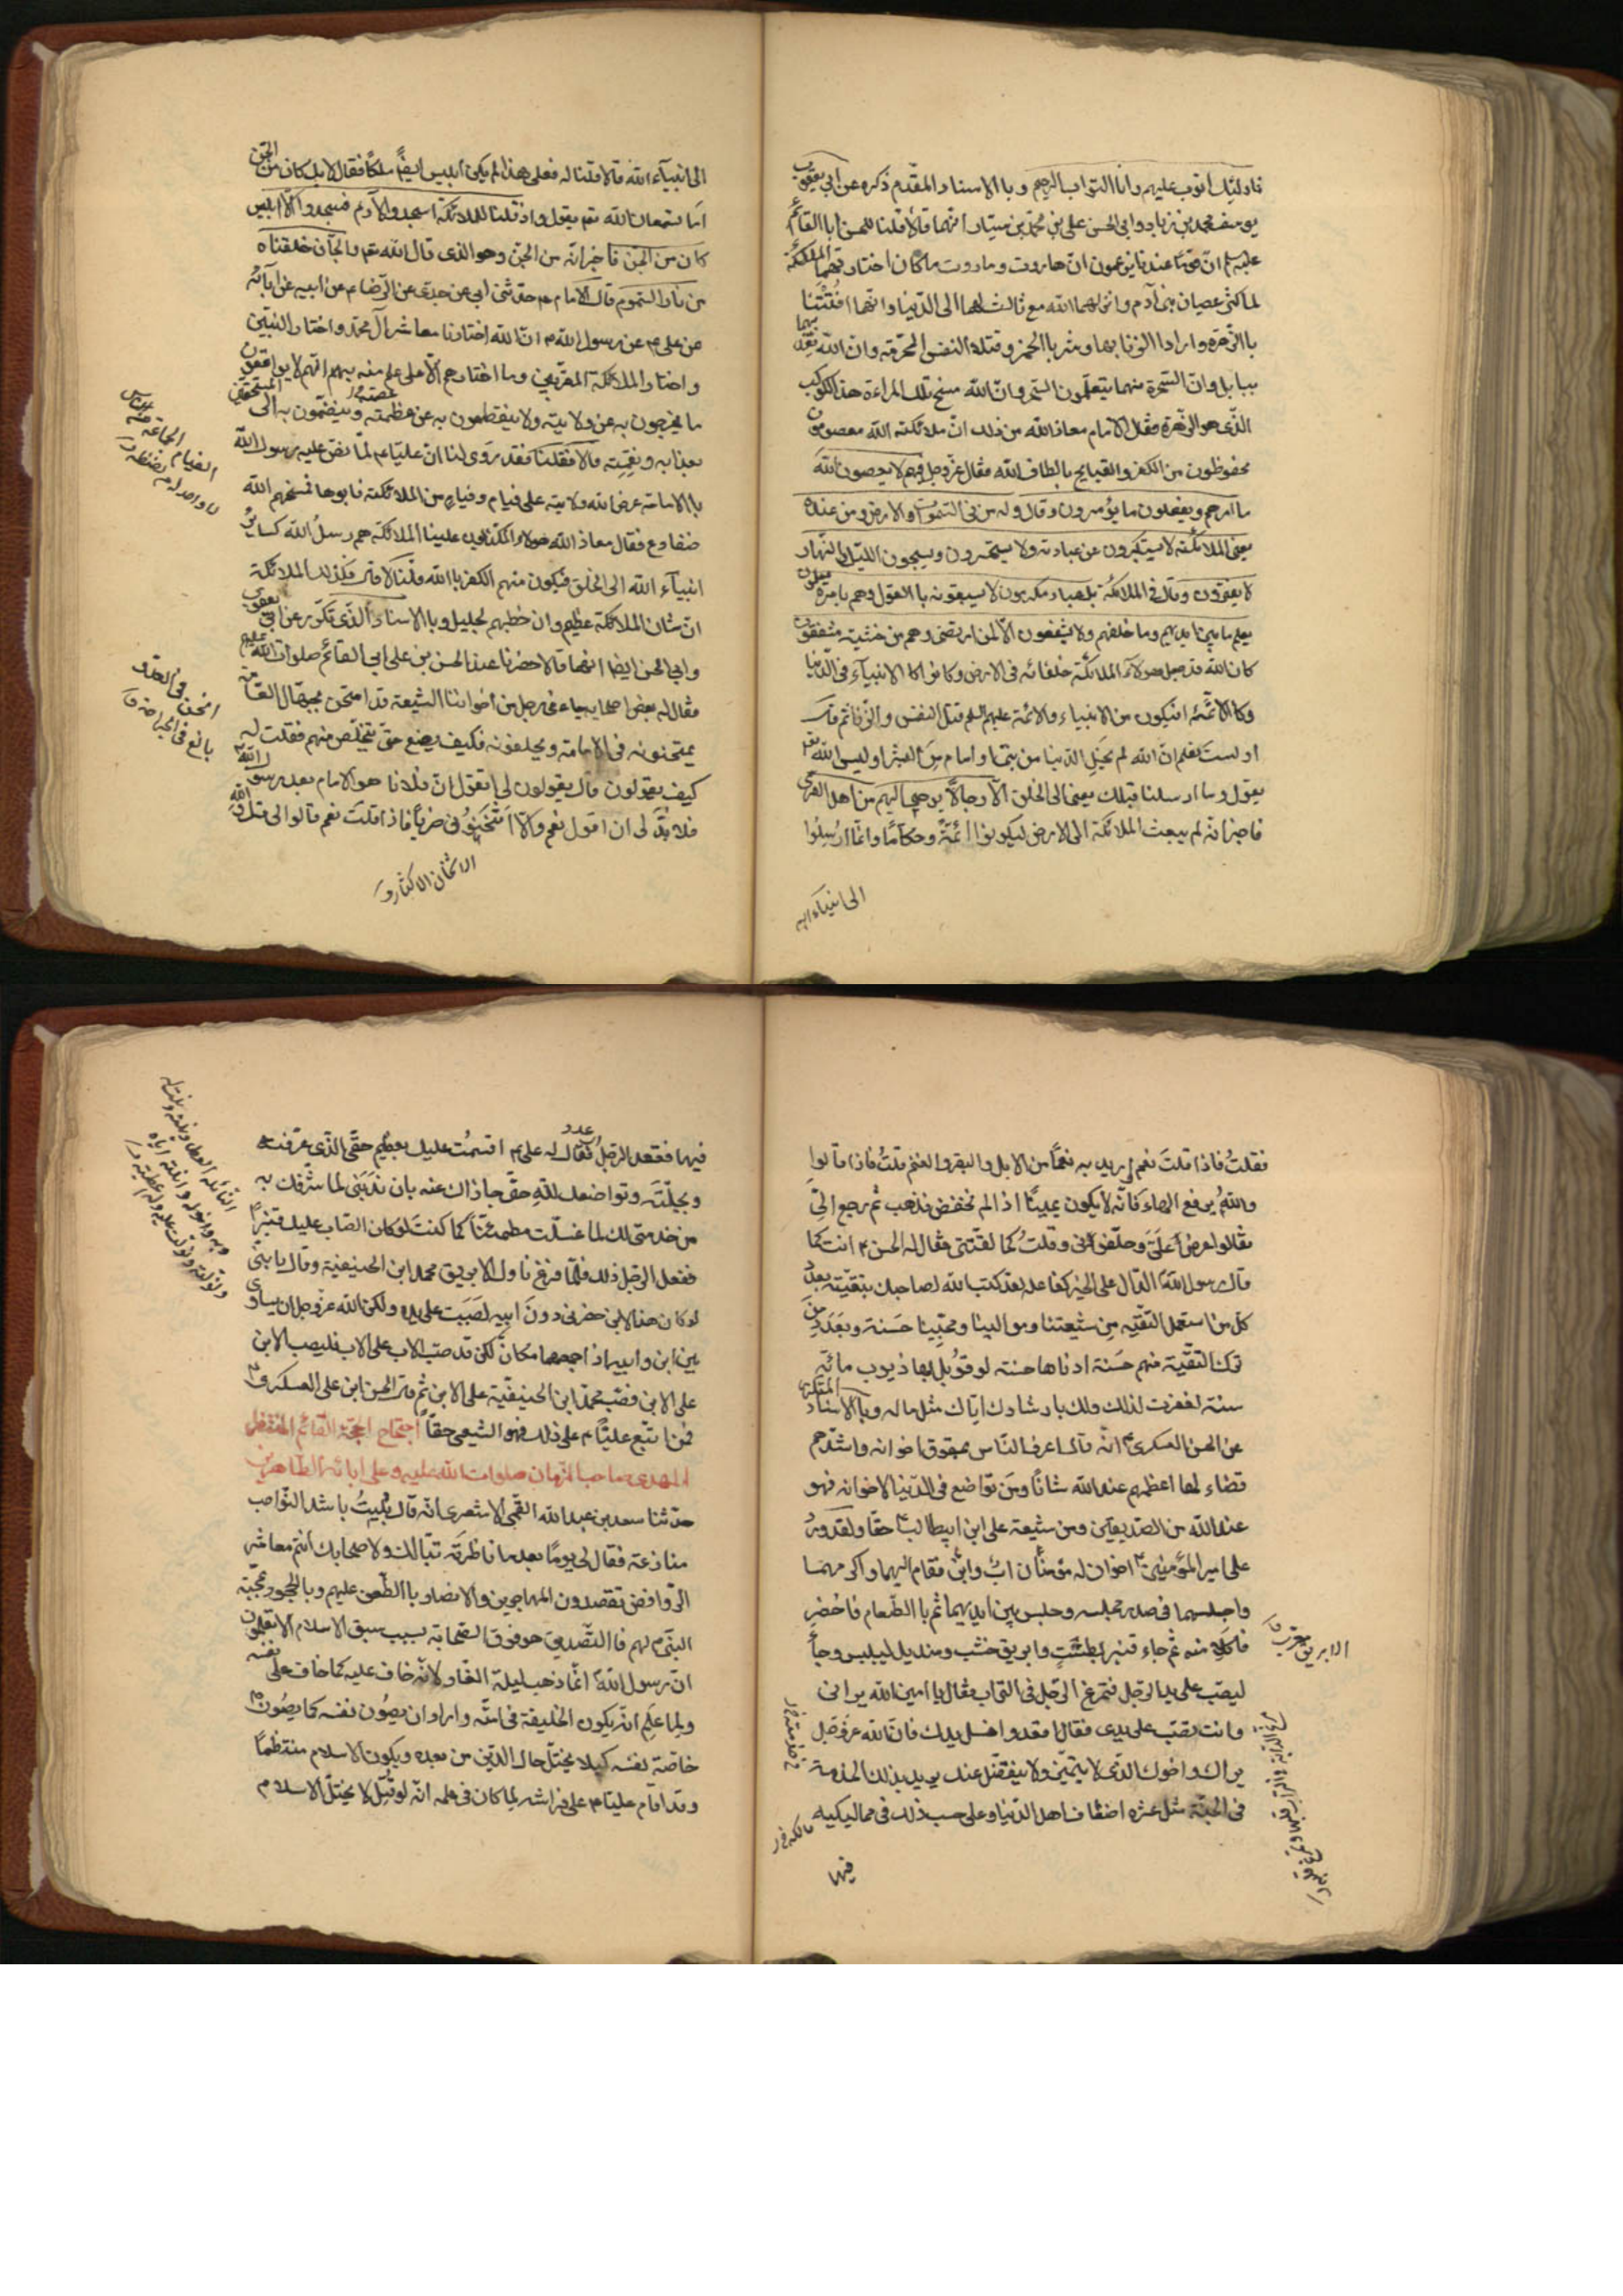 فاولئك اتوب عليهم وانا التواب الرحيم وبالاسناد المقدم ذكره عن ابي يعقوب
يوسف محمد بن زياد وابي الحسن علي بن محمد بن سيار انهما قالا قلنا للحسن ابا القائم
عليه السلم ان قوما عندنا يزعمون ان هاروت وماروت ملكان اختارتهما الملئكة
لما كثر عصيان بني آدم وانزلهما الله مع ثالث لهما الى الدنيا وانهما افتتنا
بالزهرة وارادا الزنا بها وشربا الخمر وقتلا النفس المحرمة وان الله يعذبهما
ببابل وان السحرة منهما يتعلمون السحر وان الله مسخ تلك المراءة هذا الكوكب
الذي هو الزهرة فقال الامام معاذ الله من ذلك ان ملائكة الله معصومون
محفوظون من الكفر والقبايح بالطاف الله فقال عز وجل فيهم لا يعصون الله
ما امرهم ويفعلون ما يؤمرون وقال وله من في السموات والارض ومن عنده
يعني الملائكة لا يستكبرون عن عبادته ولا يستحسرون ويسبحون الليل والنهار
لا يفترون وقال في الملائكة بل عباد مكرمون لا يسبقونه بالقول وهم بامره يعملون
يعلم ما بين ايديهم وما خلفهم ولا يشفعون الا لمن ارتضى وهم من خشيته مشفقون
كان الله قد جعل هؤلاء الملائكة خلفائه في الارض وكانوا كالانبياء في الدنيا
وكالائمة افيكون من الانبياء والائمة عليهم السلم قتل النفس والزنا ثم قال
اولست تعلم ان الله لم يخل الدنيا من نبي او امام من البشر اوليس الله تعم
يقول وما ارسلنا قبلك يعني الى الخلق الا رجالا يوحي اليهم من اهل القرى
فاخبر انه لم يبعث الملائكة الى الارض ليكونوا ائمة وحكاما وانما ارسلوا
الى انبياء الله
الى انبياء الله قالا قلنا له فعلى هذا لم يكن ابليس ايضا ملكا فقال لا بل كان من الجن
اما تسمعان الله تعم يقول واذ قلنا للملائكة اسجدوا لآدم فسجدوا الا ابليس
كان من الجن فاخبر انه من الجن وهو الذي قال الله تعم والجان خلقناه
من نار السموم قال الامام ع حدثني ابي عن جدي عن الرضا ع عن ابيه عن آبائه
عن علي ع عن رسول الله ص ان الله اختارنا معاشر آل محمد واختار النبيين
واختار الملائكة المقربين وما اختارهم الا على علم منه بهم انهم لا يواقعون
ما يخرجون به عن ولايته ولا ينقطعون به عن عظمته وينضمون به الى المستحقين
بعذابه ونقمته قالا فقلنا فقد روى لنا ان عليا ع لما نص عليه رسول الله
بالامامة عرض الله ولايته على فئام وفئام من الملائكة فابوها فمسخهم الله
ضفادع فقال معاذ الله هؤلاء المكذبون علينا الملائكة هم رسل الله كساير
انبياء الله الى الخلق فيكون منهم الكفر بالله قلنا لا قال فكذلك الملائكة
ان شان الملائكة عظيم وان خطبهم لجليل وبالاسناد الذي تكرر عن ابي يعقوب
وابي الحسن ايضا انهما قالا حضرنا عند الحسن بن علي ابي القائم صلوات الله عليهم
فقال له بعض اصحابه جاءني رجل من اخواننا الشيعة قد امتحن بجهال العامة
يمتحنونه في الامامة ويحلفونه فكيف يصنع حتى يتخلص منهم فقلت له
كيف يقولون قال يقولون لي اتقول ان فلانا هو الامام بعد رسول الله
فلا بد لي ان اقول نعم والا اثخنوني ضربا فاذا قلت نعم قالوا لي قل والله
الاثخان الاكثار
الفئام الجماعة من الناس
لا واحد له من لفظه
اثخن في العدو
بالغ في الجراحة
فقلت فاذا قلت نعم اريد به نعما من الابل والبقر والغنم قلت فاذا قالوا
والله يرفع الهاء فانه لا يكون يمينا اذا لم تخفض فذهب ثم رجع الي
فقال عرضوا علي وحلفوني وقلت كما لقنتني فقال له الحسن ع انت كما
قال رسول الله الدال على الخير كفاعله لقد كتب الله لصاحبك بتقيته بعدد
كل من استعمل التقية من شيعتنا وموالينا ومحبينا حسنة وبعدد من
ترك التقية منهم حسنة ادناها حسنة لو قوبل بها ذنوب مائة
سنة لغفرت لذلك ولك بارشادك اياك مثل ما له وبالاسناد المتكرر
عن الحسن العسكري ع انه قال اعرف الناس بحقوق اخوانه واشدهم
قضاء لها اعظمهم عند الله شانا ومن تواضع في الدنيا لاخوانه فهو
عند الله من الصديقين ومن شيعة علي ابن ابيطالب حقا ولقد ورد
على امير المؤمنين اخوان له مؤمنان اب وابن فقام اليهما واكرمهما
واجلسهما في صدر مجلسه وجلس بين ايديهما ثم بالطعام فاحضر
فاكلا منه ثم جاء قنبر بطست وابريق خشب ومنديل لييبس وجاء
ليصب على يد الرجل فتمرغ الرجل في التراب فقال يا امير الله يراني
وانت تصب على يدي فقال اقعد واغسل يديك فان الله عز وجل
يراك واخوك الذي لا يتميز ولا يتفضل عنك يريد بذلك الخدمة
في الجنة مثل عشرة اضعاف اهل الدنيا وعلى حسب ذلك في مماليكيه
فيها
الابريق معرب
فيها فقعد الرجل فقال له علي ع اقسمت عليك بعظيم حقي الذي عرفته
وبجلته وتواضعك لله حتى جازاك عنه بان ندبني لما شرفك به
من خدمتي لك لما غسلت مطمئنا كما كنت لو كان الصاب عليك قنبرا
ففعل الرجل ذلك فلما فرغ ناول الابريق محمد ابن الحنيفية وقال يا بني
لو كان هذا الابن حضرني دون ابيه لصببت على يده ولكن الله عز وجل ان يساوي
بين ابن وابيه اذا جمعهما مكان لكن قد صب الاب على الاب فليصب الابن
على الابن فصب محمد ابن الحنيفية على الابن ثم قال الحسن ابن علي العسكري
فمن اتبع عليا ع على ذلك فهو الشيعي حقا احتجاج الحجة القائم المنتظر
المهدي صاحب الزمان صلوات الله عليه وعلى ابائه الطاهرين
حدثنا سعد بن عبد الله القمي الاشعري انه قال بليت باشد النواصب
منازعة فقال لي يوما بعد ما ناظرته تبا لك ولاصحابك انتم معاشر
الروافض تقصدون المهاجرين والانصار بالطعن عليهم وبالجحود لمحبة
النبي لهم فالصديق هو فوق الصحابة بسبب سبق الاسلام الا تعلمون
ان رسول الله انما ذهب ليلة الغار لانه خاف عليه كما خاف على نفسه
ولما علم انه يكون الخليفة في امته واراد ان يصون نفسه كما يصون
خاصة نفسه كيلا يختل حال الدين من بعده ويكون الاسلام منتظما
وقد اقام عليا ع على فراشه لما كان في علمه انه لو قتل لا يختل الاسلام